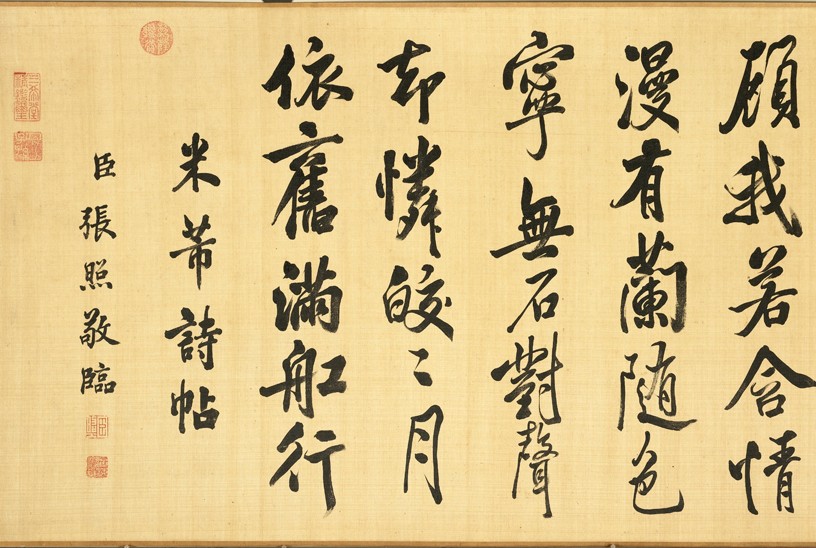 顧我若含情
漫有蘭随色
寧無石對聲
却憐皎〻月
依舊滿舡行
米芾詩帖
臣張照敬臨